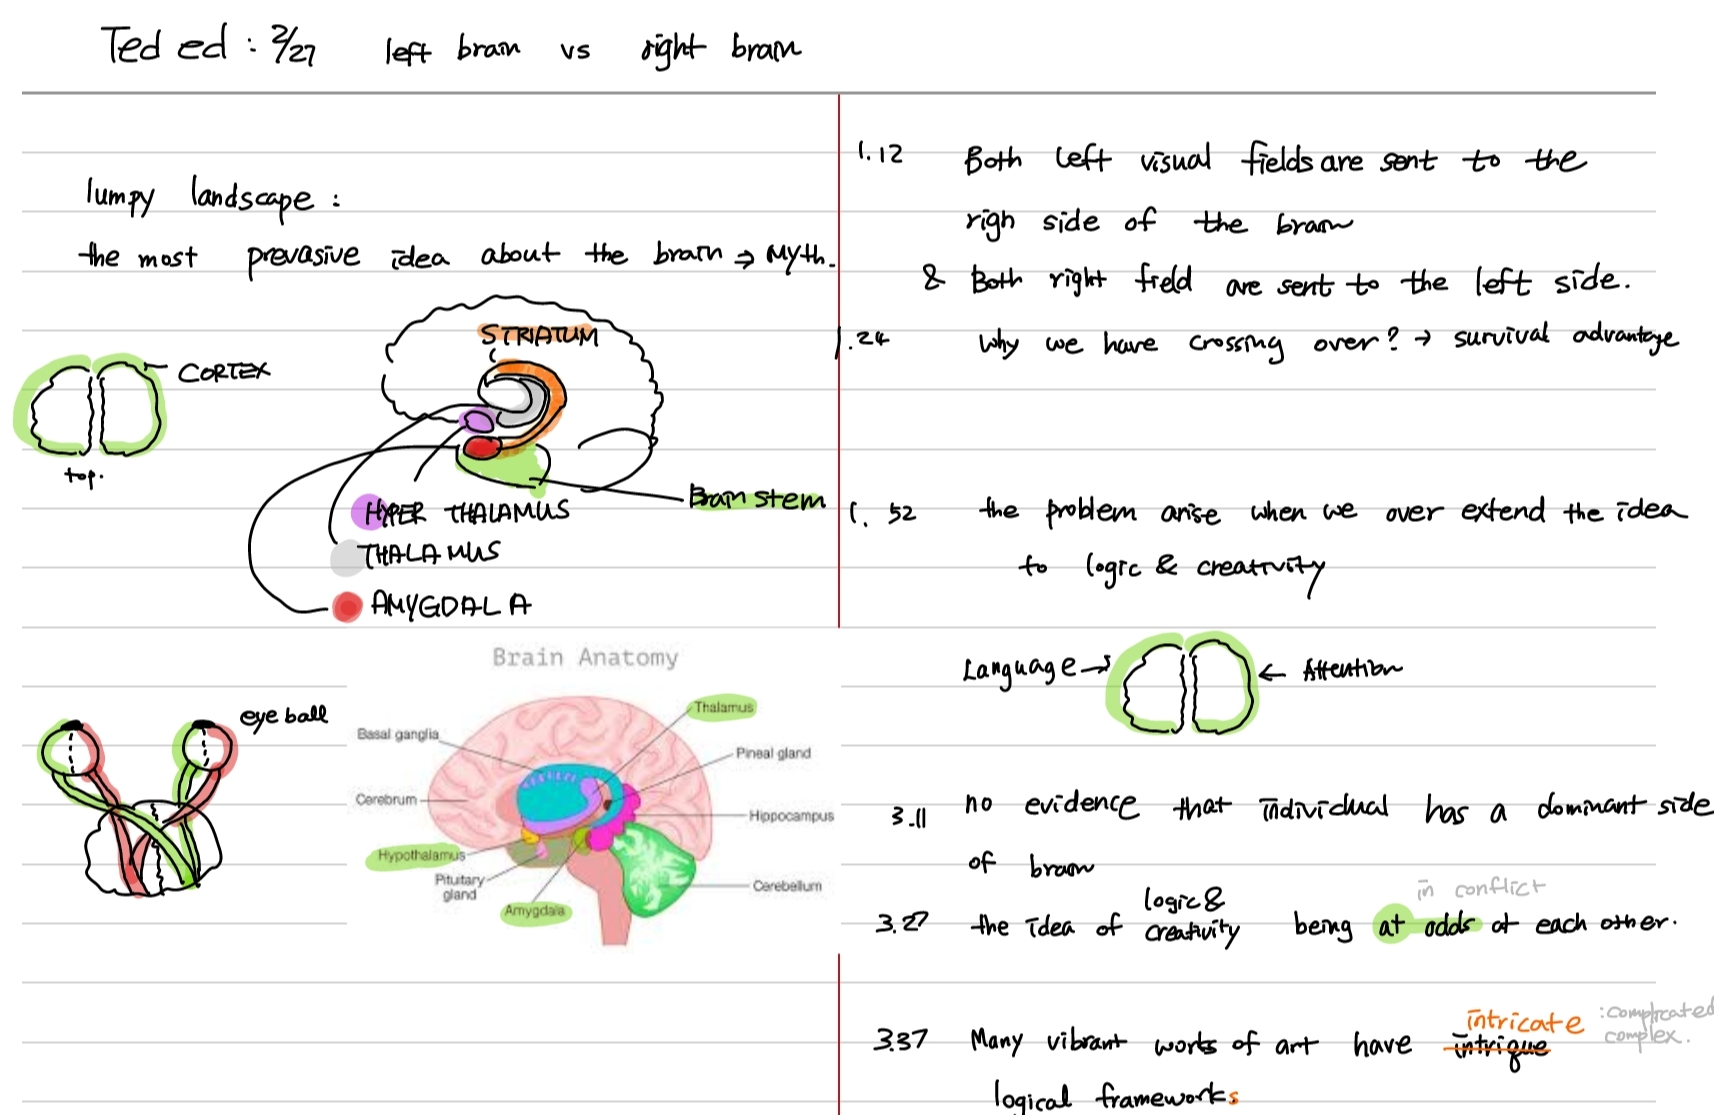 Ted ed : 2/27 left brain vs right brain
lumpy landscape :
the most prevasive idea about the brain → Myth.
STRIATUM
CORTEX
top.
Brain stem
HYPER THALAMUS
THALAMUS
AMYGDALA
eye ball
Brain Anatomy
Thalamus
Basal ganglia
Pineal gland
Cerebrum
Hippocampus
Hypothalamus
Pituitary
gland
Cerebellum
Amygdala
1.12 Both left visual fields are sent to the
righ side of the brain
& Both right field are sent to the left side.
1.24 Why we have crossing over? → survival advantage
1.52 the problem arise when we over extend the idea
to logic & creativity
Language → ← Attention
3.11 no evidence that individual has a dominant side
of brain
in conflict
3.27 the idea of logic & creativity being at odds at each other.
intricate : complicated
complex.
3.37 Many vibrant works of art have intrigue
logical frameworks